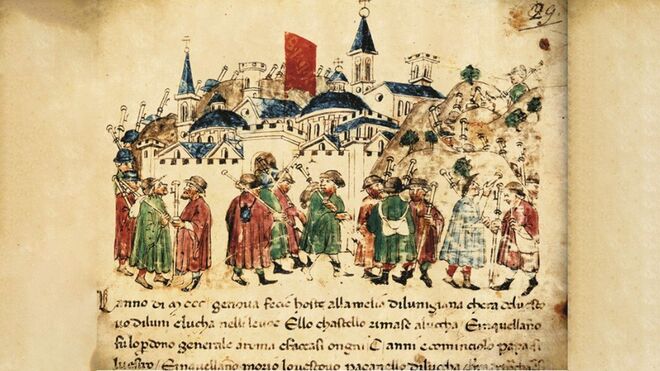 29
Lanno di mccc genova fecie hoste allamelia dilunigiana chera delvesco
vo diluni elucha nelli levoe Ello chastello rimase alucha / Einquellano
fu lopdono generale aroma efaccasi ongni C anni ecominciolo papa
/ Einquellano morio lovescovo paganello dilucha /